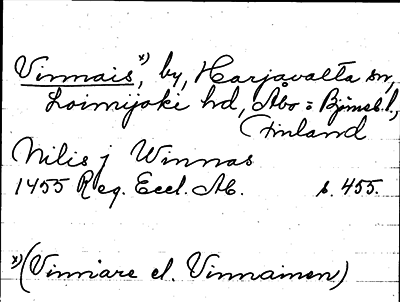 Vinnais x), by, Harjavalta sn,
Loimijoki hd, Åbo = Bjørneb. l.,
Finland
Nilis j Winnas
1455 Reg. Eccl. Ab. s. 455.
x) (Vinniare el. Vinnainen)